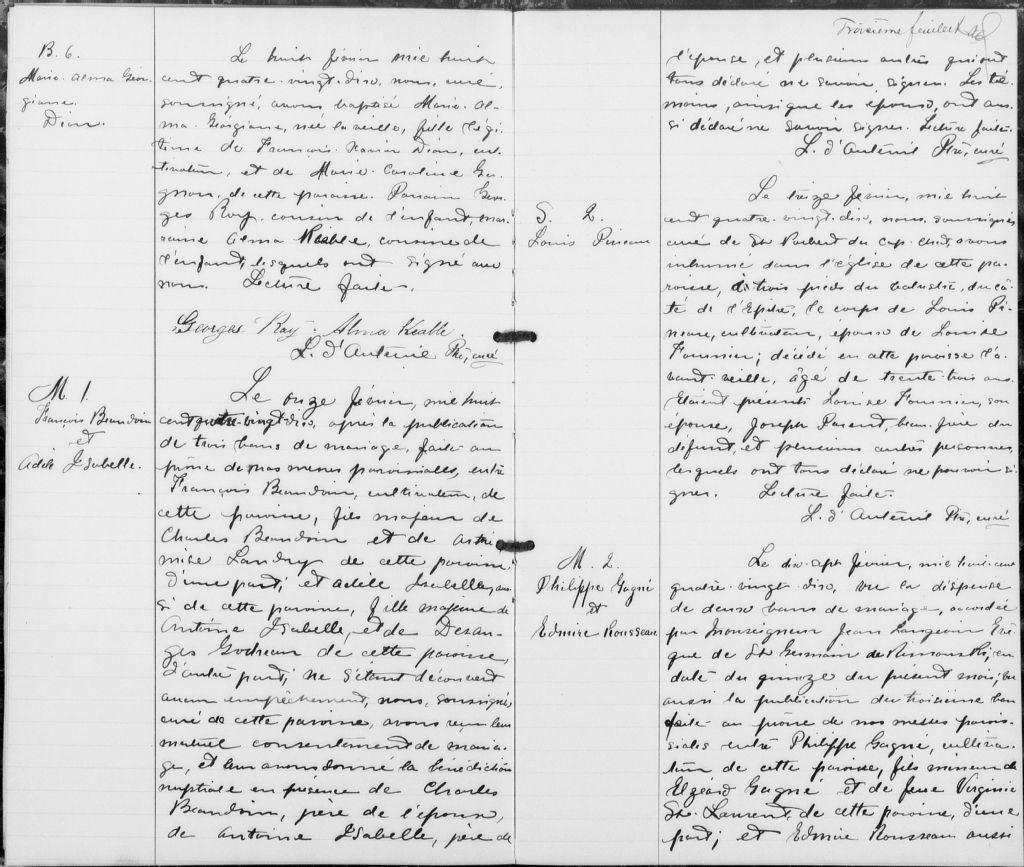 B. 6.
Marie. Alma Geor-
giana.
Dion.
Le huit février mil huit
cent quatre-vingt-dix, nous, curé,
soussigné, avons baptisé Marie. Al-
ma. Georgiana, née la veille, fille légi-
time de François-Xavier Dion, cul-
tivateur, et de Marie-Caroline Ga-
gnon, de cette paroisse. Parrain Geor-
ges Roy, cousin de l'enfant, mar-
raine Alma Keable, cousine de
l'enfant, lesquels ont signé avec
nous. Lecture faite.
Georges Roy. Alma Keable.
L. d'Auteuil Ptre, curé
M. 1.
François Beaudoin
et
Adèle Isabelle.
Le onze février, mil huit
cent quatre-vingt-dix, après la publication
de trois bans de mariage, faite au
prône de nos messes paroissiales, entre
François Beaudoin, cultivateur, de
cette paroisse, fils majeur de
Charles Beaudoin et de Arthé-
mise Landry de cette paroisse
d'une part; et Adèle Isabelle, aus-
si de cette paroisse, fille majeure de
Antoine Isabelle, et de Desan-
ges Godreau de cette paroisse,
d'autre part; ne s'étant découvert
aucun empêchement, nous, soussigné,
curé de cette paroisse, avons reçu leur
mutuel consentement de maria-
ge, et leur avons donné la bénédiction
nuptiale en présence de Charles
Beaudoin, père de l'époux,
de Antoine Isabelle, père de
Troisième feuillet
l'épouse, et plusieurs autres qui ont
tous déclaré ne savoir signer. Les té-
moins, ainsi que les époux, ont aus-
si déclaré ne savoir signer. Lecture faite.
L. d'Auteuil Ptre, curé
S. 2.
Louis Pineau
Le treize février, mil huit
cent quatre-vingt-dix, nous, soussigné,
curé de St Norbert du Cap-chat, avons
inhumé dans l'église de cette pa-
roisse, à trois pieds du balustre, du cô-
té de l'Epître, le corps de Louis Pi-
neau, cultivateur, époux de Louise
Fournier; décédé en cette paroisse l'a-
vant-veille, âgé de trente-trois ans.
Etaient présents Louise Fournier, son
épouse, Joseph Parent, beau-frère du
défunt, et plusieurs autres personnes,
lesquels ont tous déclaré ne pouvoir si-
gner. Lecture faite.
L. d'Auteuil Ptre, curé
M. 2.
Philippe Gagné
et
Edmire Rousseau
Le dix-sept février, mil huit cent
quatre-vingt-dix, vu la dispense
de deux bans de mariage, accordée
par Monseigneur Jean Langevin Evê-
que de St Germain de Rimouski, en
date du quinze du présent mois; vu
aussi la publication du troisième ban
faite au prône de nos messes parois-
siales entre Philippe Gagné, cultiva-
teur de cette paroisse, fils mineur de
Elzear Gagné et de feue Virginie
St. Laurent, de cette paroisse, d'une
part; et Edmire Rousseau aussi